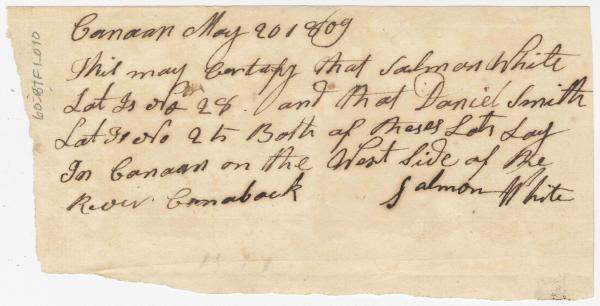 Canaan May 20 1809
This may Certafy that Salmon White
Lot Is No 28. and that Daniel Smith
Lot Is No 25 Both of theses Lots Lay
In Canaan on the West Side of the
River Canaback Salmon White
60.81F1.010